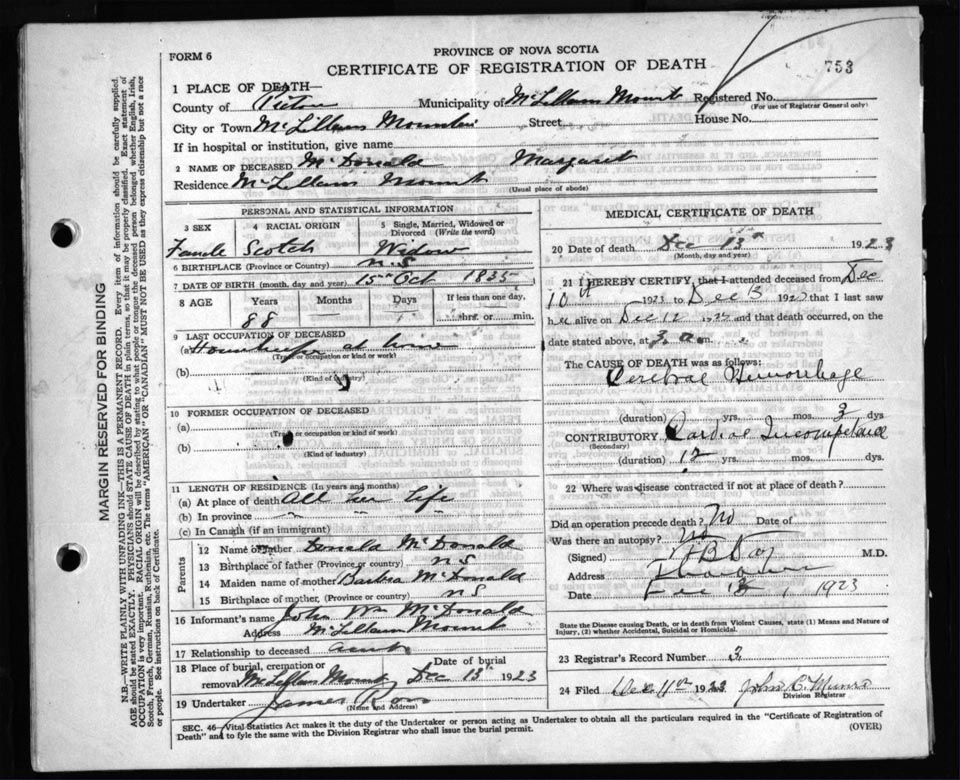 MARGIN RESERVED FOR BINDING
N.B.—WRITE PLAINLY WITH UNFADING INK—THIS IS A PERMANENT RECORD. Every item of information should be carefully supplied.
AGE should be stated EXACTLY. PHYSICIANS should STATE CAUSE OF DEATH in plain terms, so that it may be properly classified. Exact statement of
OCCUPATION is very important. RACIAL ORIGIN will be described by stating to what people or tongue the deceased person belonged whether English, Irish,
Scotch, French, German, Russian, Ruthenian, etc. The terms "AMERICAN" OR "CANADIAN" MUST NOT BE USED as they express citizenship but not a race
or people. See instructions on back of Certificate.
FORM 6
PROVINCE OF NOVA SCOTIA
CERTIFICATE OF REGISTRATION OF DEATH
753
1 PLACE OF DEATH—
County of Pictou Municipality of McLellans Mount Registered No.
(For use of Registrar General only)
City or Town McLellans Mountain Street House No.
If in hospital or institution, give name
2 NAME OF DECEASED McDonald Margaret
Residence McLellans Mount
(Usual place of abode)
PERSONAL AND STATISTICAL INFORMATION
3 SEX 4 RACIAL ORIGIN 5 Single, Married, Widowed or Divorced (Write the word)
Famele Scotch Widow
6 BIRTHPLACE (Province or Country) N.S
7 DATE OF BIRTH (month, day and year) 15th Oct 1835
8 AGE Years Months Days If less than one day,
88 hrs. or min.
9 LAST OCCUPATION OF DECEASED
(a) at home
(Trade or occupation or kind or work)
(b)
(Kind of industry)
10 FORMER OCCUPATION OF DECEASED
(a)
(Trade or occupation or kind of work)
(b)
(Kind of industry)
11 LENGTH OF RESIDENCE (In years and months)
(a) At place of death All her Life
(b) In province
(c) In Canada (if an immigrant)
Parents
12 Name of father Donald McDonald
13 Birthplace of father (Province or country) N S
14 Maiden name of mother Barbra McDonald
15 Birthplace of mother, (Province or country) N S
16 Informant's name John Wm McDonald
Address McLellans Mount
17 Relationship to deceased aunt
18 Place of burial, cremation or Date of burial
removal McLellans Mount Dec 13th 1923
19 Undertaker James Ross
(Name and Address)
MEDICAL CERTIFICATE OF DEATH
20 Date of death Dec 13th 1923
(Month, day and year)
21 I HEREBY CERTIFY, that I attended deceased from Dec
10th 1923 to Dec 13 1923 that I last saw
her alive on Dec 12 1923 and that death occurred, on
the date stated above, at 3 a m.
The CAUSE OF DEATH was as follows:
Cerebral Hemorrhage
(duration) yrs. mos. 3 dys
CONTRIBUTORY Cardiac
(Secondary)
(duration) 12 yrs. mos. dys.
22 Where was disease contracted if not at place of death?
Did an operation precede death? No Date of
Was there an autopsy? No
(Signed) M.D.
Address
Date 1923
State the Disease causing Death, or in death from Violent Causes, state (1) Means and Nature of
Injury, (2) whether Accidental, Suicidal or Homicidal.
23 Registrar's Record Number 3
24 Filed Dec 11th 1923 John C. Munro
Division Registrar
SEC. 46—Vital Statistics Act makes it the duty of the Undertaker or person acting as Undertaker to obtain all the particulars required in the "Certificate of Registration of
Death" and to fyle the same with the Division Registrar who shall issue the burial permit.
(OVER)